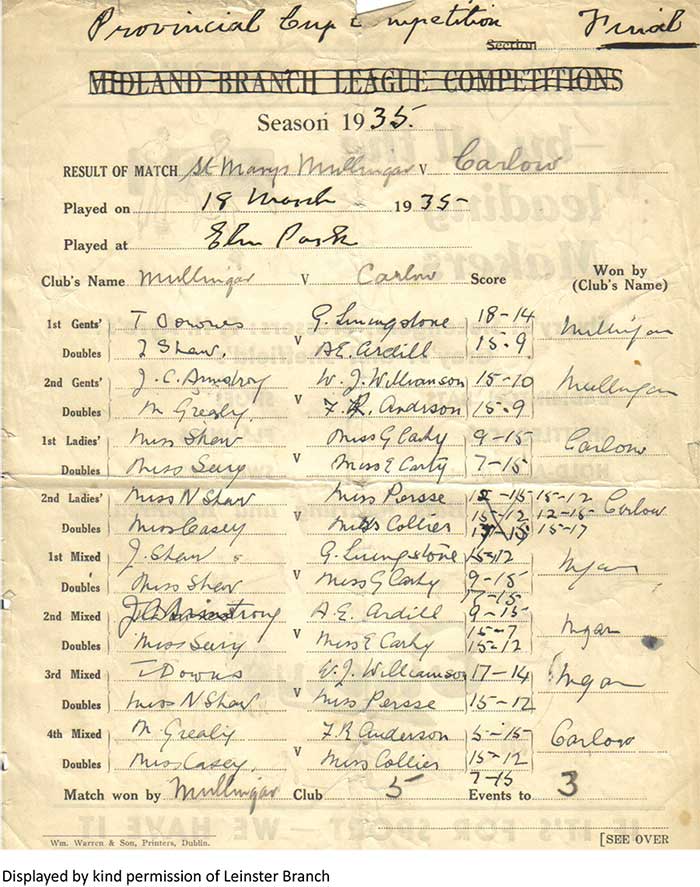 Provincial Cup Competition Final
Section
MIDLAND BRANCH LEAGUE COMPETITIONS
Season 1935.
RESULT OF MATCH St Marys Mullingar V Carlow
Played on 18 March 1935
Played at Elm Park
Club's Name Mullingar V Carlow Score Won by (Club's Name)
1st Gents' T Downes G. Livingstone 18-14
Doubles J Shaw. V A.E. Ardill 15-9 Mullingar
2nd Gents' J. C. Armstrong W. J. Williamson 15-10
Doubles M Grealy. V F.R. Andison 15-9 Mullingar
1st Ladies' Miss Shaw Miss G Carty 9-15
Doubles Miss Seery V Miss E Carty 7-15 Carlow
2nd Ladies' Miss N Shaw Miss Persse 15-12
Doubles Miss Casey V Miss Collier 12-15 Carlow
15-17
1st Mixed J. Shaw G. Livingstone 15-12
Doubles Miss Shaw V Miss G Carty 9-15 Mgar
17-15
2nd Mixed J.C. Armstrong A.E. Ardill 9-15
Doubles Miss Seery V Miss E Carty 15-7 Mgar
15-12
3rd Mixed T Downs W. J. Williamson 17-14
Doubles Miss N Shaw V Miss Persse 15-12 Mgar
4th Mixed M. Grealy F. R Anderson 5-15
Doubles Miss Casey. V Miss Collier 15-12 Carlow
7-15
Match won by Mullingar Club 5 Events to 3
Wm. Warren & Son, Printers, Dublin.
[SEE OVER
Displayed by kind permission of Leinster Branch